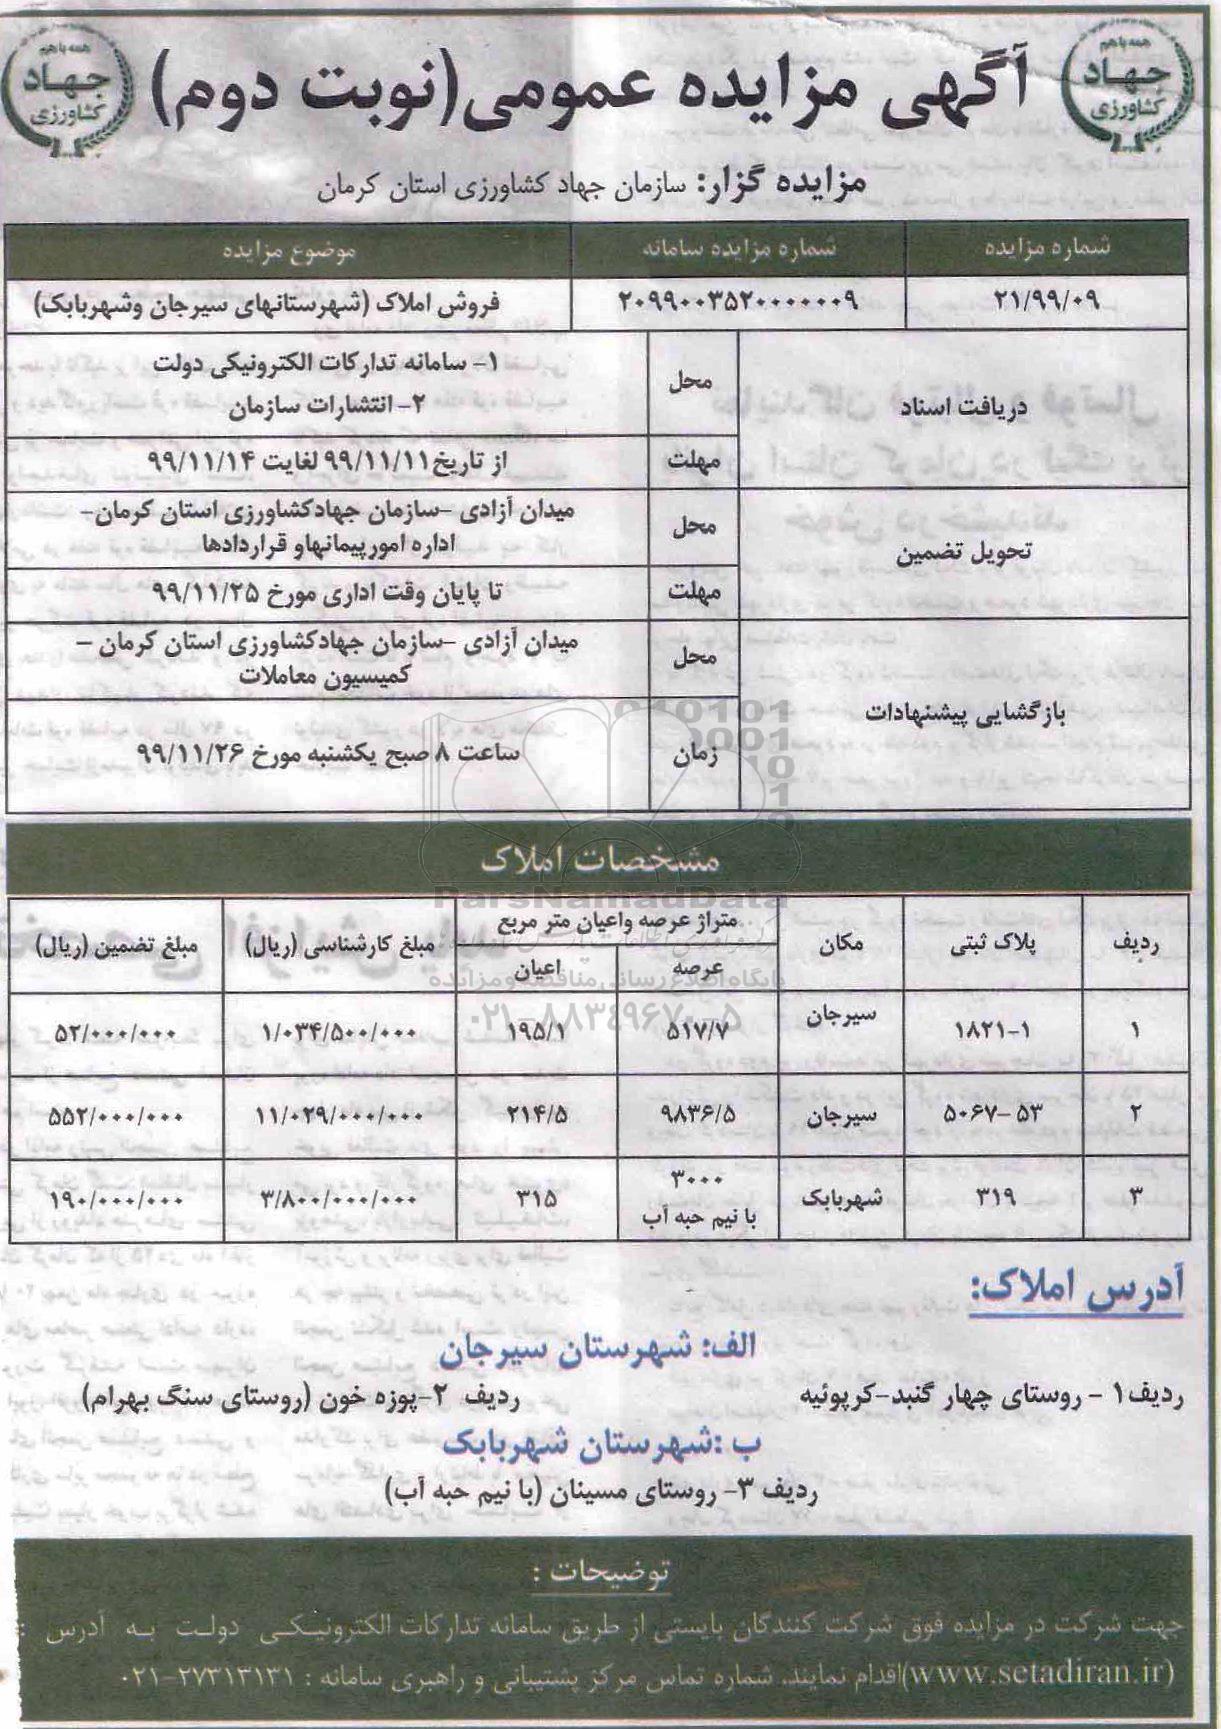 همه با هم
جهاد
کشاورزی
همه با هم
جهاد
کشاورزی
آگهی مزایده عمومی(نوبت دوم)
مزایده گزار: سازمان جهاد کشاورزی استان کرمان
شماره مزایده	شماره مزایده سامانه	موضوع مزایده
۲۱/۹۹/۰۹	۲۰۹۹۰۰۳۵۲۰۰۰۰۰۰۹	فروش املاک (شهرستانهای سیرجان وشهربابک)
دریافت اسناد	محل	۱- سامانه تدارکات الکترونیکی دولت
۲- انتشارات سازمان
مهلت	از تاریخ۹۹/۱۱/۱۱ لغایت ۹۹/۱۱/۱۴
تحویل تضمین	محل	میدان آزادی –سازمان جهادکشاورزی استان کرمان–
اداره امورپیمانهاو قراردادها
مهلت	تا پایان وقت اداری مورخ ۹۹/۱۱/۲۵
بازگشایی پیشنهادات	محل	میدان آزادی –سازمان جهادکشاورزی استان کرمان –
کمیسیون معاملات
زمان	ساعت ۸ صبح یکشنبه مورخ ۹۹/۱۱/۲۶
مشخصات املاک
ParsNamadData
ردیف	پلاک ثبتی	مکان	متراژ عرصه واعیان متر مربع	مبلغ کارشناسی (ریال)	مبلغ تضمین (ریال)
عرصه	اعیان
پایگاه اطلاع رسانی مناقصه و مزایده
۰۲۱-۸۸۳۴۹۶۷۰-۵
۱	۱۸۲۱-۱	سیرجان	۵۱۷/۷	۱۹۵/۱	۱/۰۳۴/۵۰۰/۰۰۰	۵۲/۰۰۰/۰۰۰
۲	۵۰۶۷-۵۳	سیرجان	۹۸۳۶/۵	۲۱۴/۵	۱۱/۰۲۹/۰۰۰/۰۰۰	۵۵۲/۰۰۰/۰۰۰
۳	۳۱۹	شهربابک	۳۰۰۰
با نیم حبه آب	۳۱۵	۳/۸۰۰/۰۰۰/۰۰۰	۱۹۰/۰۰۰/۰۰۰
آدرس املاک:
الف: شهرستان سیرجان
ردیف۱ - روستای چهار گنبد-کرپوئیه	ردیف ۲-پوزه خون (روستای سنگ بهرام)
ب :شهرستان شهربابک
ردیف ۳- روستای مسینان (با نیم حبه آب)
توضیحات :
جهت شرکت در مزایده فوق شرکت کنندگان بایستی از طریق سامانه تدارکات الکترونیکی دولت به آدرس :
(www.setadiran.ir)اقدام نمایند. شماره تماس مرکز پشتیبانی و راهبری سامانه : ۰۲۱-۲۷۳۱۳۱۳۱